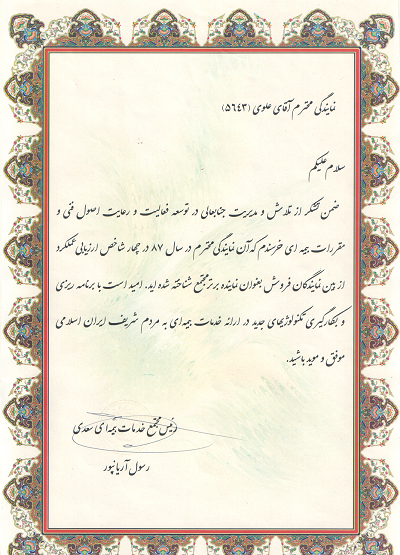 نمایندگی محترم آقای علوی (۵۶۴۳)
سلام علیکم
ضمن تشکر از تلاش و مدیریت جنابعالی در توسعه فعالیت و رعایت اصول فنی و
مقررات بیمه ای خرسندم که آن نمایندگی محترم در سال ۸۷ در چهار شاخص ارزیابی عملکرد
از بین نمایندگان فروش بعنوان نماینده برتر مجتمع شناخته شده اید. امید است با برنامه ریزی
و بکارگیری تکنولوژیهای جدید در ارائه خدمات بیمه‌ای به مردم شریف ایران اسلامی
موفق و موید باشید.
رئیس مجتمع خدمات بیمه‌ای سعدی
رسول آریانپور